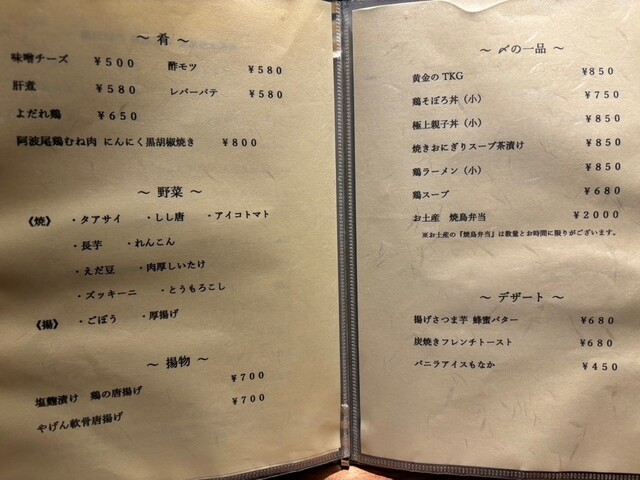 ～ 肴 ～
味噌チーズ ¥500 酢モツ ¥580
肝煮 ¥580 レバーパテ ¥580
よだれ鶏 ¥650
阿波尾鶏むね肉 にんにく黒胡椒焼き ¥800
～ 野菜 ～
《焼》 ・タアサイ ・しし唐 ・アイコトマト
・長芋 ・れんこん
・えだ豆 ・肉厚しいたけ
・ズッキーニ ・とうもろこし
《揚》 ・ごぼう ・厚揚げ
～ 揚物 ～
塩麴漬け 鶏の唐揚げ ¥700
やげん軟骨唐揚げ ¥700
～ 〆の一品 ～
黄金のTKG ¥850
鶏そぼろ丼（小） ¥750
極上親子丼（小） ¥850
焼きおにぎりスープ茶漬け ¥850
鶏ラーメン（小） ¥850
鶏スープ ¥680
お土産 焼鳥弁当 ¥2000
※お土産の『焼鳥弁当』は数量とお時間に限りがございます。
～ デザート ～
揚げさつま芋 蜂蜜バター ¥680
炭焼きフレンチトースト ¥680
バニラアイスもなか ¥450